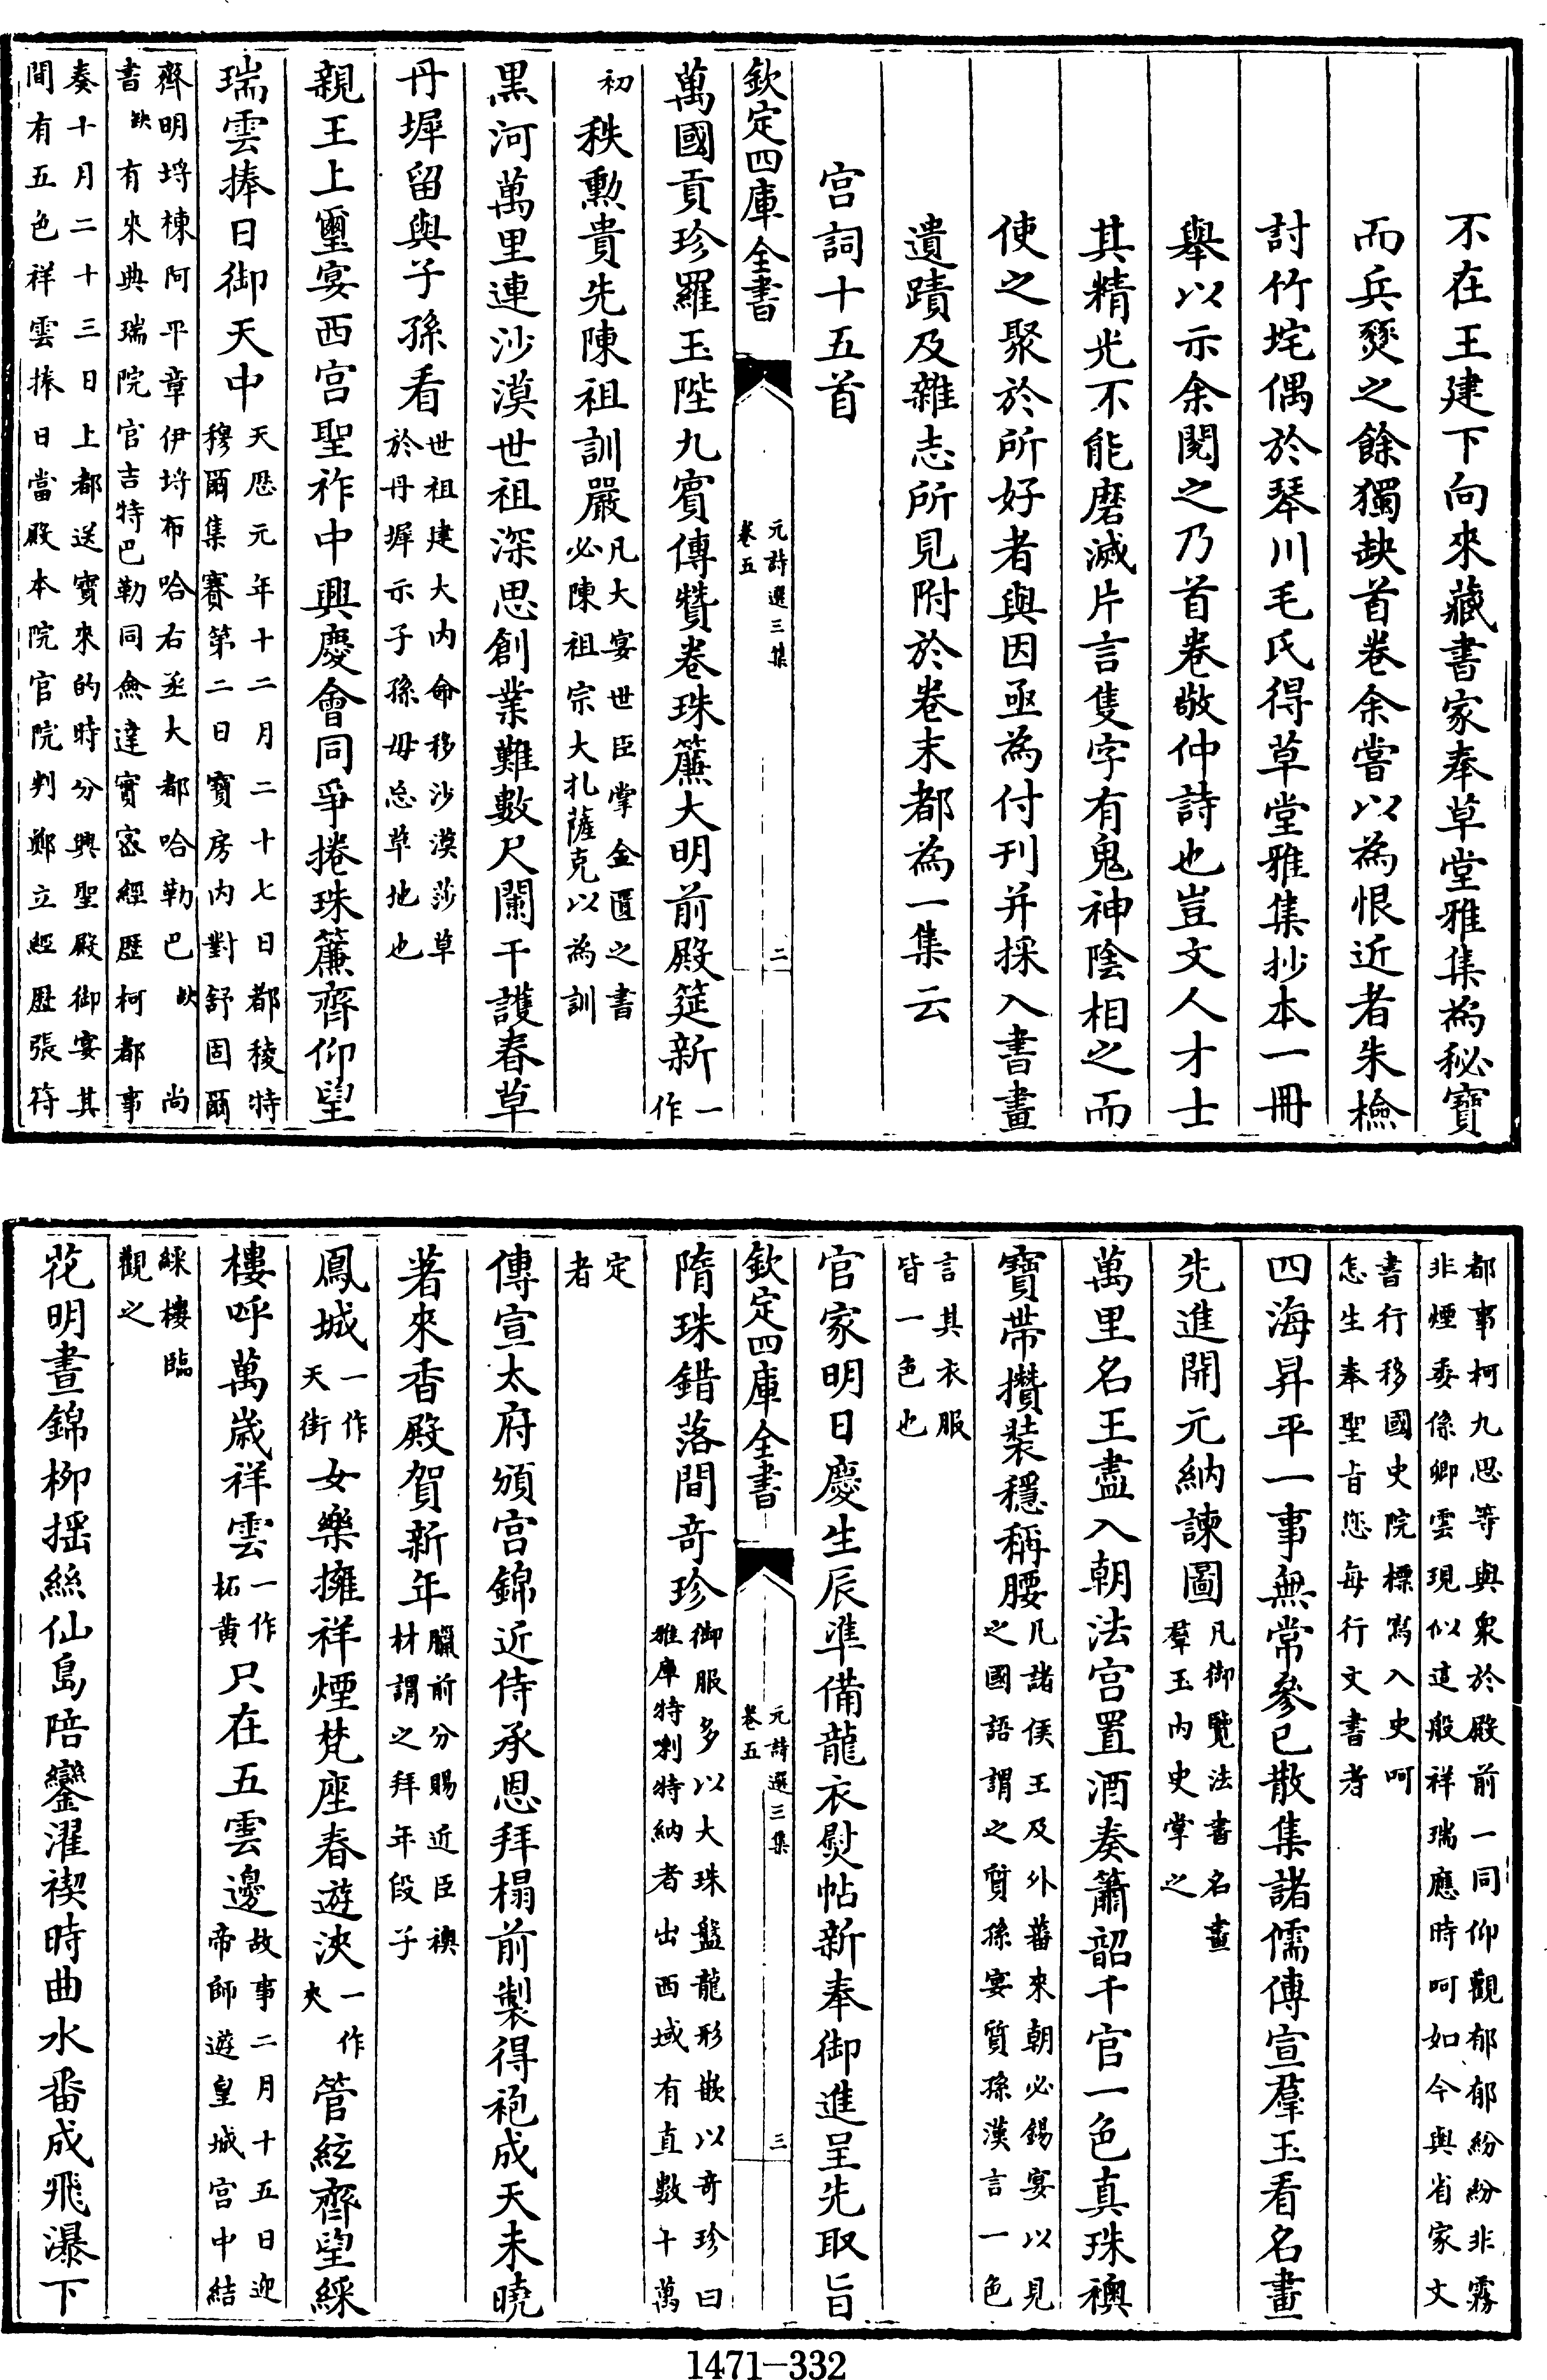 不在王建下向來藏書家奉草堂雅集為秘寶
而兵燹之餘獨缺首卷余嘗以為恨近者朱檢
討竹垞偶於琴川毛氏得草堂雅集抄本一冊
舉以示余閱之乃首卷敬仲詩也豈文人才士
其精光不能磨滅片言隻字有鬼神陰相之而
使之聚於所好者與因亟為付刋并採入書畫
遺蹟及雜志所見附於卷末都為一集云
宫詞十五首
欽定四庫全書
元詩選三集
卷五
二
萬國貢珍羅玉陛九賓傳贊卷珠簾大明前殿筵新一
作
初秩勲貴先陳祖訓嚴凡大宴世臣掌金匱之書
必陳祖宗大扎薩克以為訓
黒河萬里連沙漠世祖深思創業難數尺闌干護春草
丹墀留與子孫看世祖建大内命移沙漠莎草
於丹墀示子孫毋忘草地也
親王上璽宴西宫聖祚中興慶會同爭捲珠簾齊仰望
瑞雲捧日御天中天厯元年十二月二十七日都稜特
穆爾集賽第二日寶房内對舒固爾
齊明埒棟阿平章伊埒布哈右丞大都哈勒巴缺 尚
書缺有來典瑞院官吉特巴勒同僉達實密經歴柯都事
奏十月二十三日上都送寶來的時分興聖殿御宴其
間有五色祥雲捧日當殿本院官院判鄭立經歴張符
都事柯九思等與衆於殿前一同仰觀郁郁紛紛非霧
非煙委係卿雲現似這般祥瑞應時呵如今與省家文
書行移國史院標寫入史呵
怎生奉聖旨您每行文書者
四海昇平一事無常參已散集諸儒傳宣羣玉看名畫
先進開元納諫圖凡御覽法書名畫
羣玉内史掌之
萬里名王盡入朝法宫置酒奏簫韶千官一色真珠襖
寶帶攢装穩稱腰凡諸侯王及外蕃來朝必錫宴以見
之國語謂之質孫宴質孫漢言一色
言其衣服
皆一色也
官家明日慶生辰準備龍衣熨帖新奉御進呈先取旨
欽定四庫全書
元詩選三集
卷五
三
隋珠錯落間奇珍御服多以大珠盤龍形嵌以奇珍曰
雅庫特喇特納者出西域有直數十萬
定
者
傳宣太府頒宫錦近侍承恩拜榻前製得袍成天未曉
著來香殿賀新年臘前分賜近臣襖
材謂之拜年段子
鳳城一作
天街女樂擁祥煙梵座春遊浹一作
夾管絃齊望綵
樓呼萬歳祥雲一作
柘黄只在五雲邊故事二月十五日迎
帝師遊皇城宫中結
綵樓臨
觀之
花明晝錦栁揺絲仙島陪鑾濯禊時曲水番成飛瀑下
1471—332